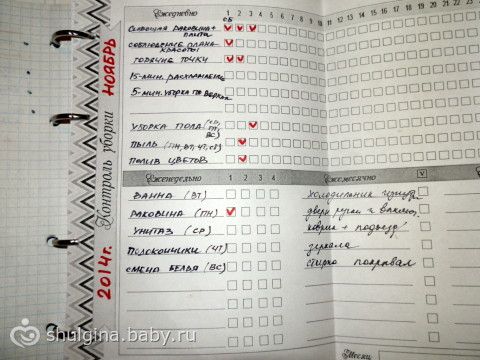 2014г. Контроль уборки НОЯБРЬ
Ежедневно
СБ
1 2 3 4 5 6 7 8 9 10 11 12 13 14 15 16 17 18 19 20 21 22 23
СИЯЮЩАЯ РАКОВИНА +
ПЛИТА
СОБЛЮДЕНИЕ ПЛАНА
КРАСОТЫ
ГОРЯЧИЕ ТОЧКИ
15-МИН. РАСХЛАМЛЕНИЕ
5-МИН. УБОРКА ПО ВЕРХАМ
УБОРКА ПОЛА (СБ,
ВС)
ПЫЛЬ (ПН, ВТ, ЧТ, СБ)
ПОЛИВ ЦВЕТОВ
Еженедельно 1 2 3 4
ВАННА (ВТ)
РАКОВИНА (ПН)
УНИТАЗ (СР)
ПОДОКОННИКИ (ЧТ)
СМЕНА БЕЛЬЯ (ВС)
Ежемесячно V
холодильник
двери, ручки и
коврик + подъезд
зеркала
стирка покрывал
Мысли
shulgina.baby.ru